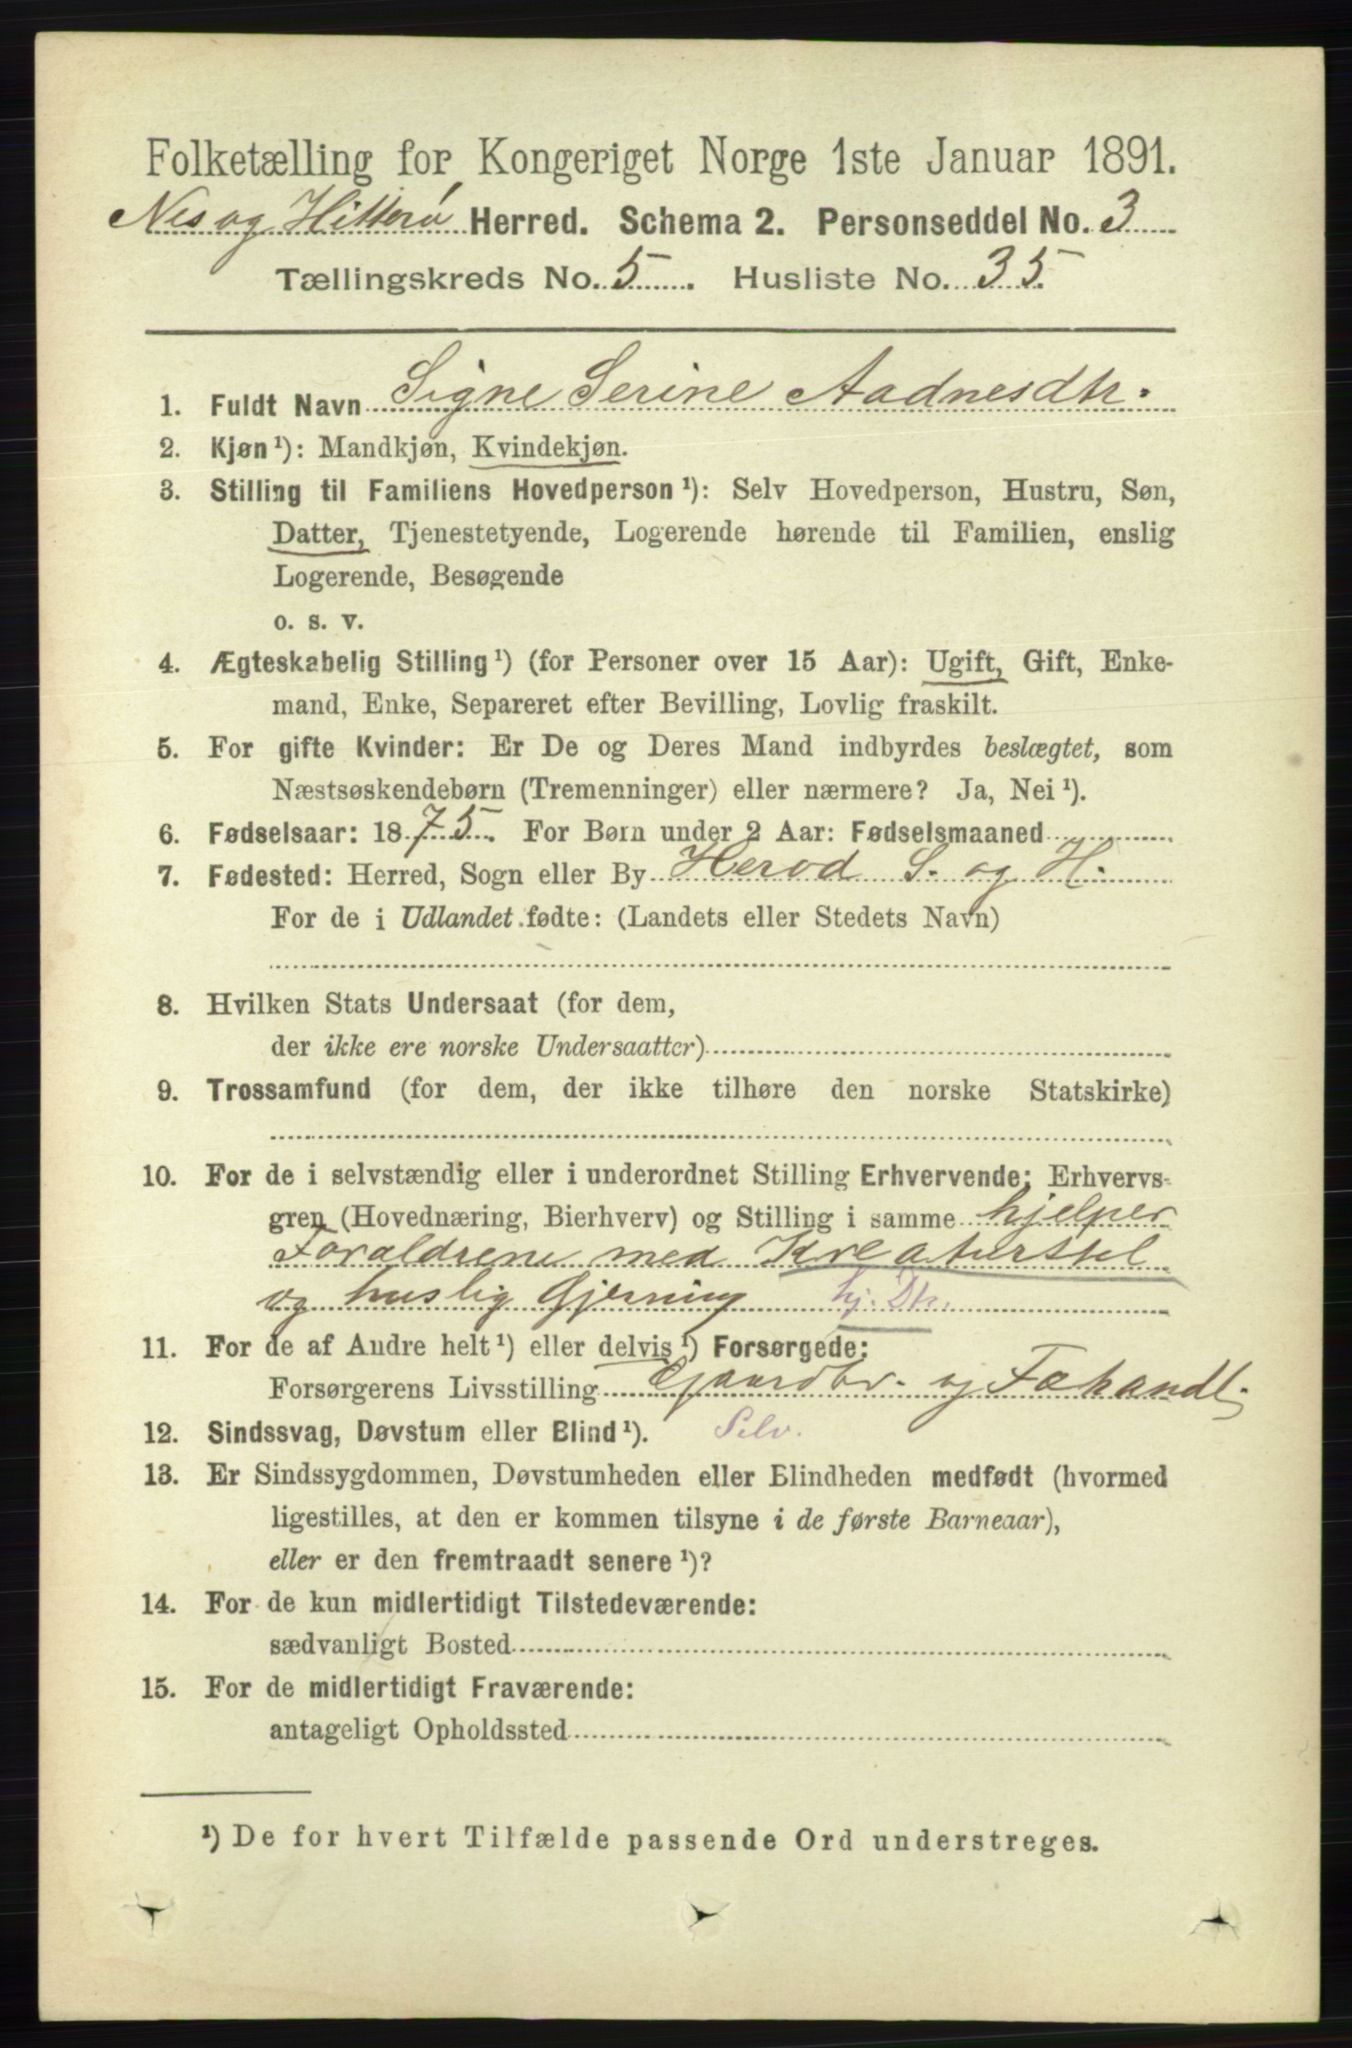 Folketælling for Kongeriget Norge 1ste Januar 1891.
Nes og Hitterø Herred. Schema 2. Personseddel No. 3
Tællingskreds No. 5. Husliste No. 35.
1. Fuldt Navn Signe Serine Aadnesdtr.
2. Kjøn ¹): Mandkjøn, Kvindekjøn.
3. Stilling til Familiens Hovedperson ¹): Selv Hovedperson, Hustru, Søn,
Datter, Tjenestetyende, Logerende hørende til Familien, enslig
Logerende, Besøgende
o. s. v.
4. Ægteskabelig Stilling ¹) (for Personer over 15 Aar): Ugift, Gift, Enke-
mand, Enke, Separeret efter Bevilling, Lovlig fraskilt.
5. For gifte Kvinder: Er De og Deres Mand indbyrdes beslægtet, som
Næstsøskendebørn (Tremenninger) eller nærmere? Ja, Nei ¹).
6. Fødselsaar: 1875. For Børn under 2 Aar: Fødselsmaaned
7. Fødested: Herred, Sogn eller By Herod S. og H.
For de i Udlandet fødte: (Landets eller Stedets Navn)
8. Hvilken Stats Undersaat (for dem,
der ikke ere norske Undersaatter)
9. Trossamfund (for dem, der ikke tilhøre den norske Statskirke)
10. For de i selvstændig eller i underordnet Stilling Erhvervende: Erhvervs-
gren (Hovednæring, Bierhverv) og Stilling i samme hjelper
Foraldrene med Kreaturstel
og huslig Gjerning hj. Dtr.
11. For de af Andre helt ¹) eller delvis ¹) Forsørgede:
Forsørgerens Livsstilling Gaardbr. og Fahandl.
12. Sindssvag, Døvstum eller Blind ¹). Selv.
13. Er Sindssygdommen, Døvstumheden eller Blindheden medfødt (hvormed
ligestilles, at den er kommen tilsyne i de første Barneaar),
eller er den fremtraadt senere ¹)?
14. For de kun midlertidigt Tilstedeværende:
sædvanligt Bosted
15. For de midlertidigt Fraværende:
antageligt Opholdssted
¹) De for hvert Tilfælde passende Ord understreges.